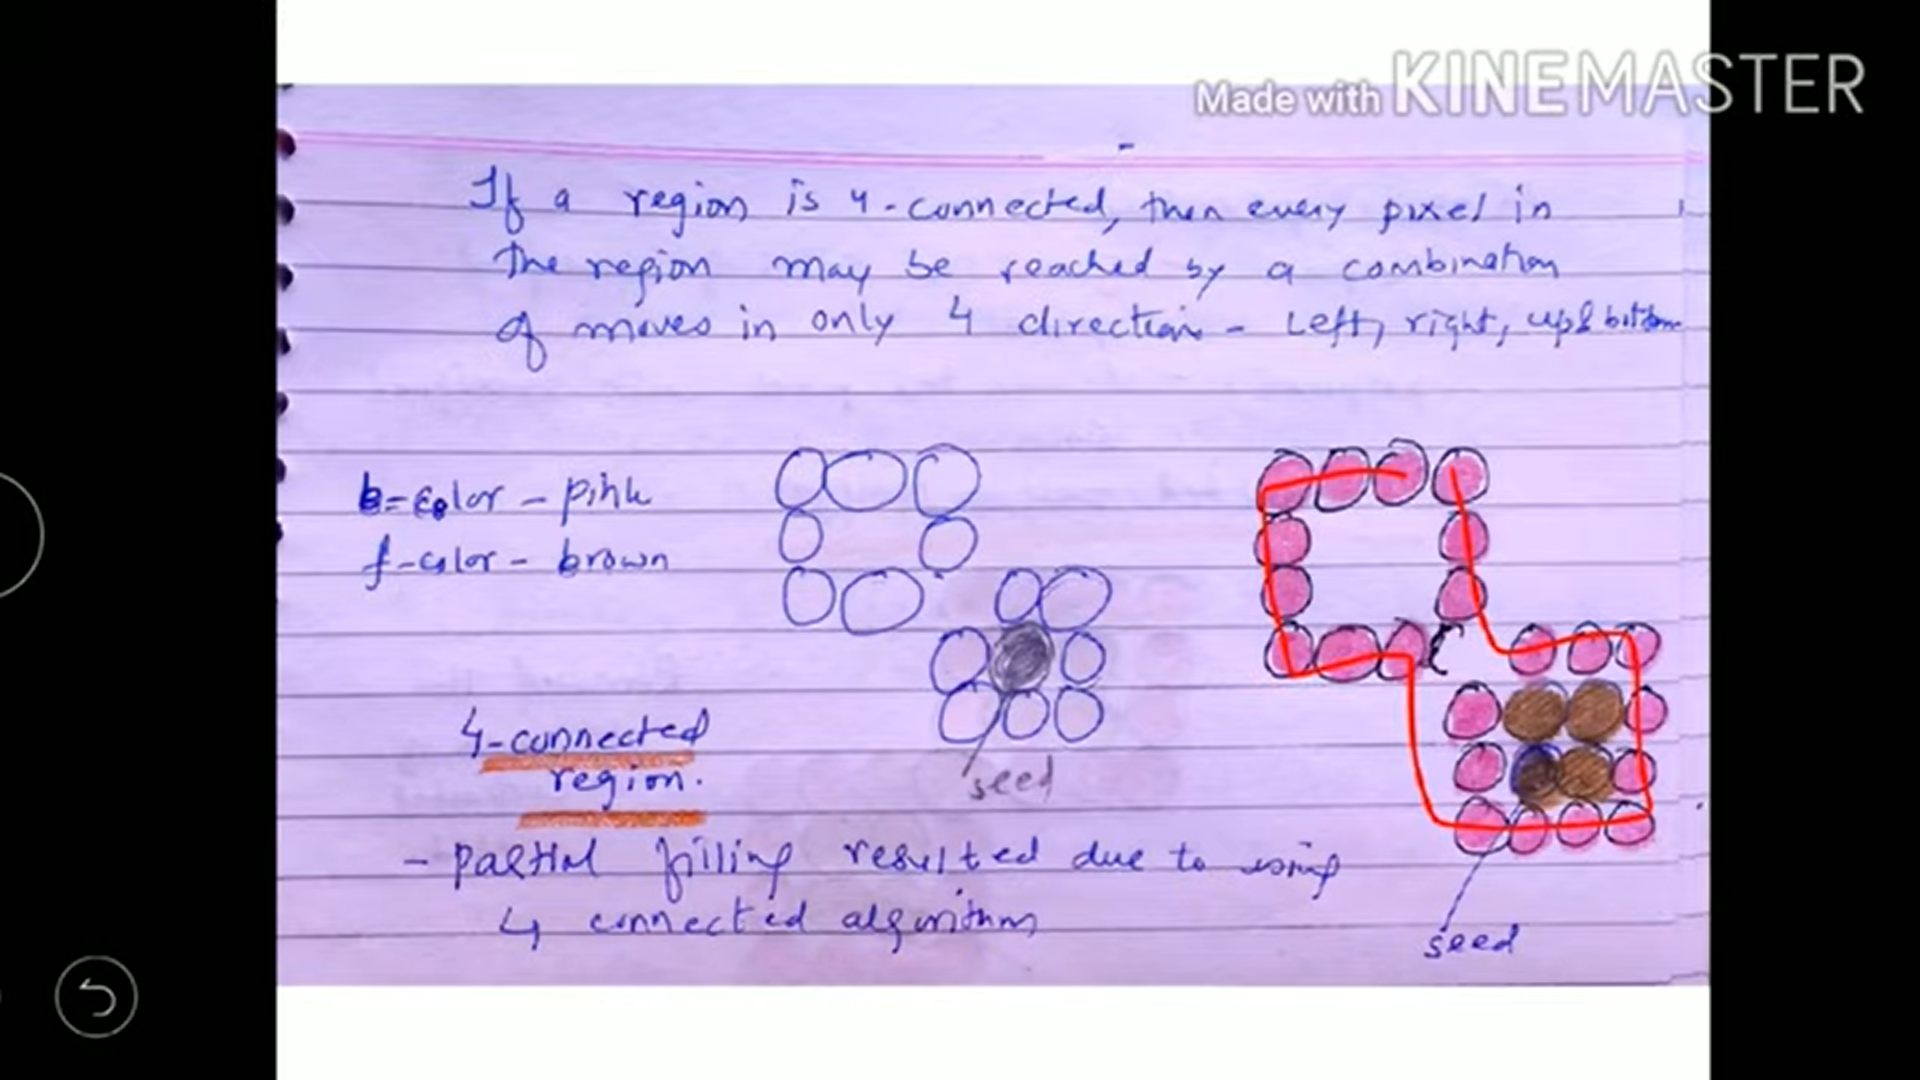 Made with KINEMASTER
If a region is 4-connected, then every pixel in
the region may be reached by a combination
of moves in only 4 direction - Left, right, up & bottom
b-color - pink
f-color - brown
4-connected
region.
seed
- partial filling resulted due to using
4 connected algorithm
seed